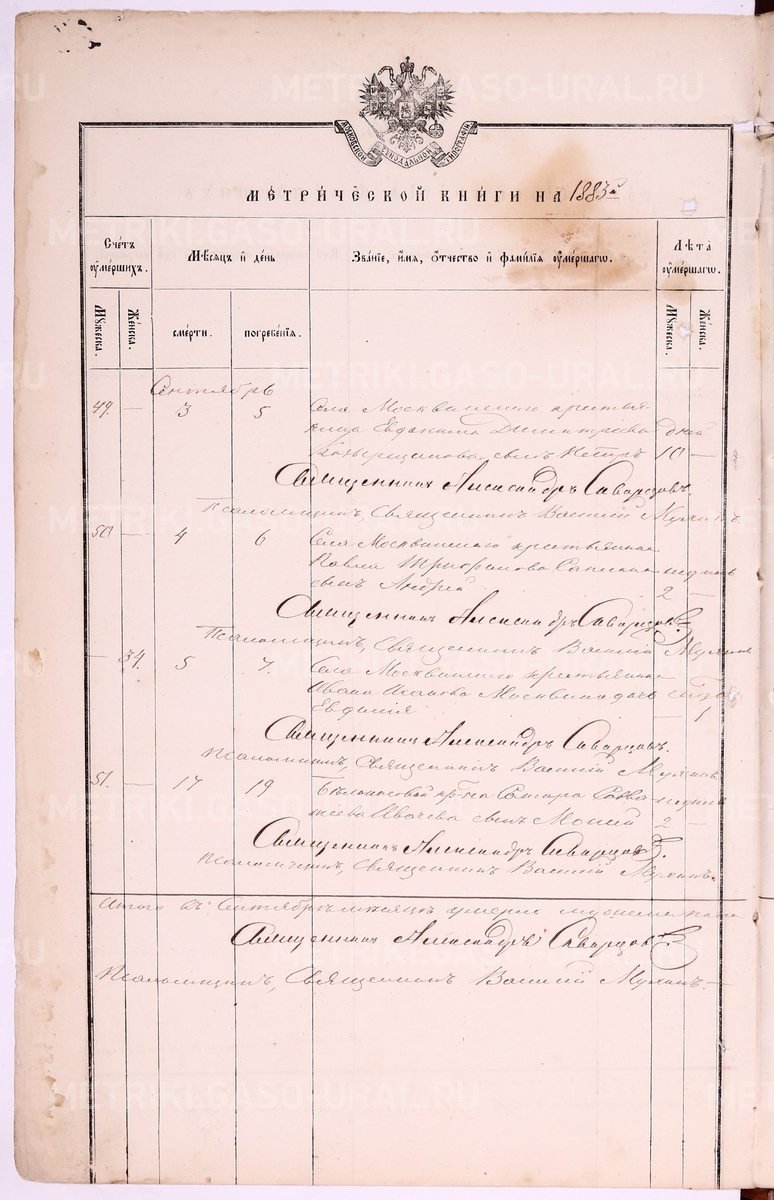 МОСКОВСКОЙ СѴНОДАЛЬНОЙ ТИПОГРАФІИ
МЕТРИ́ЧЕСКОЙ КНИ́ГИ НА 1883 г.
Сче́тъ оумершихъ.
Мѣсяцъ и де́нь
Зва́ніе, и́мя, о́тчество и фами́лія оуме́ршагѡ.
Лѣта̀ оуме́ршагѡ.
Мꙋжеска.
Же́нска.
сме́рти.
погребе́нія.
Мꙋжеска.
Же́нска.
Сентябрь
49. — 3 5 Села Москвинскаго крестья
Евдокима Димитріева дней
сынъ Петръ 10 —
Священникъ Александръ Скварцовъ.
Псаломщикъ, Священникъ Василій Мухинъ
50 — 4 6 Села Москвинскаго крестьянина
Павла Трифонова
сынъ Андрей 2 —
Священникъ Александръ Скварцовъ
Псаломщикъ, Священникъ Василій Мухинъ
— 34. 5 7. Села Москвинскаго крестьянина
Ивана Москвина дочь
Евдокія — 1
Священникъ Александръ Скварцовъ.
Псаломщикъ, Священникъ Василій Мухинъ
51. — 17 19
сынъ Моисей 2 —
Священникъ Александръ Скварцовъ.
Псаломщикъ, Священникъ Василій Мухинъ.
Итого въ Сентябрѣ мѣсяцѣ умерло мужеска пола
Священникъ Александръ Скварцовъ
Псаломщикъ, Священникъ Василій Мухинъ. —
METRIKI.GASO-URAL.RU